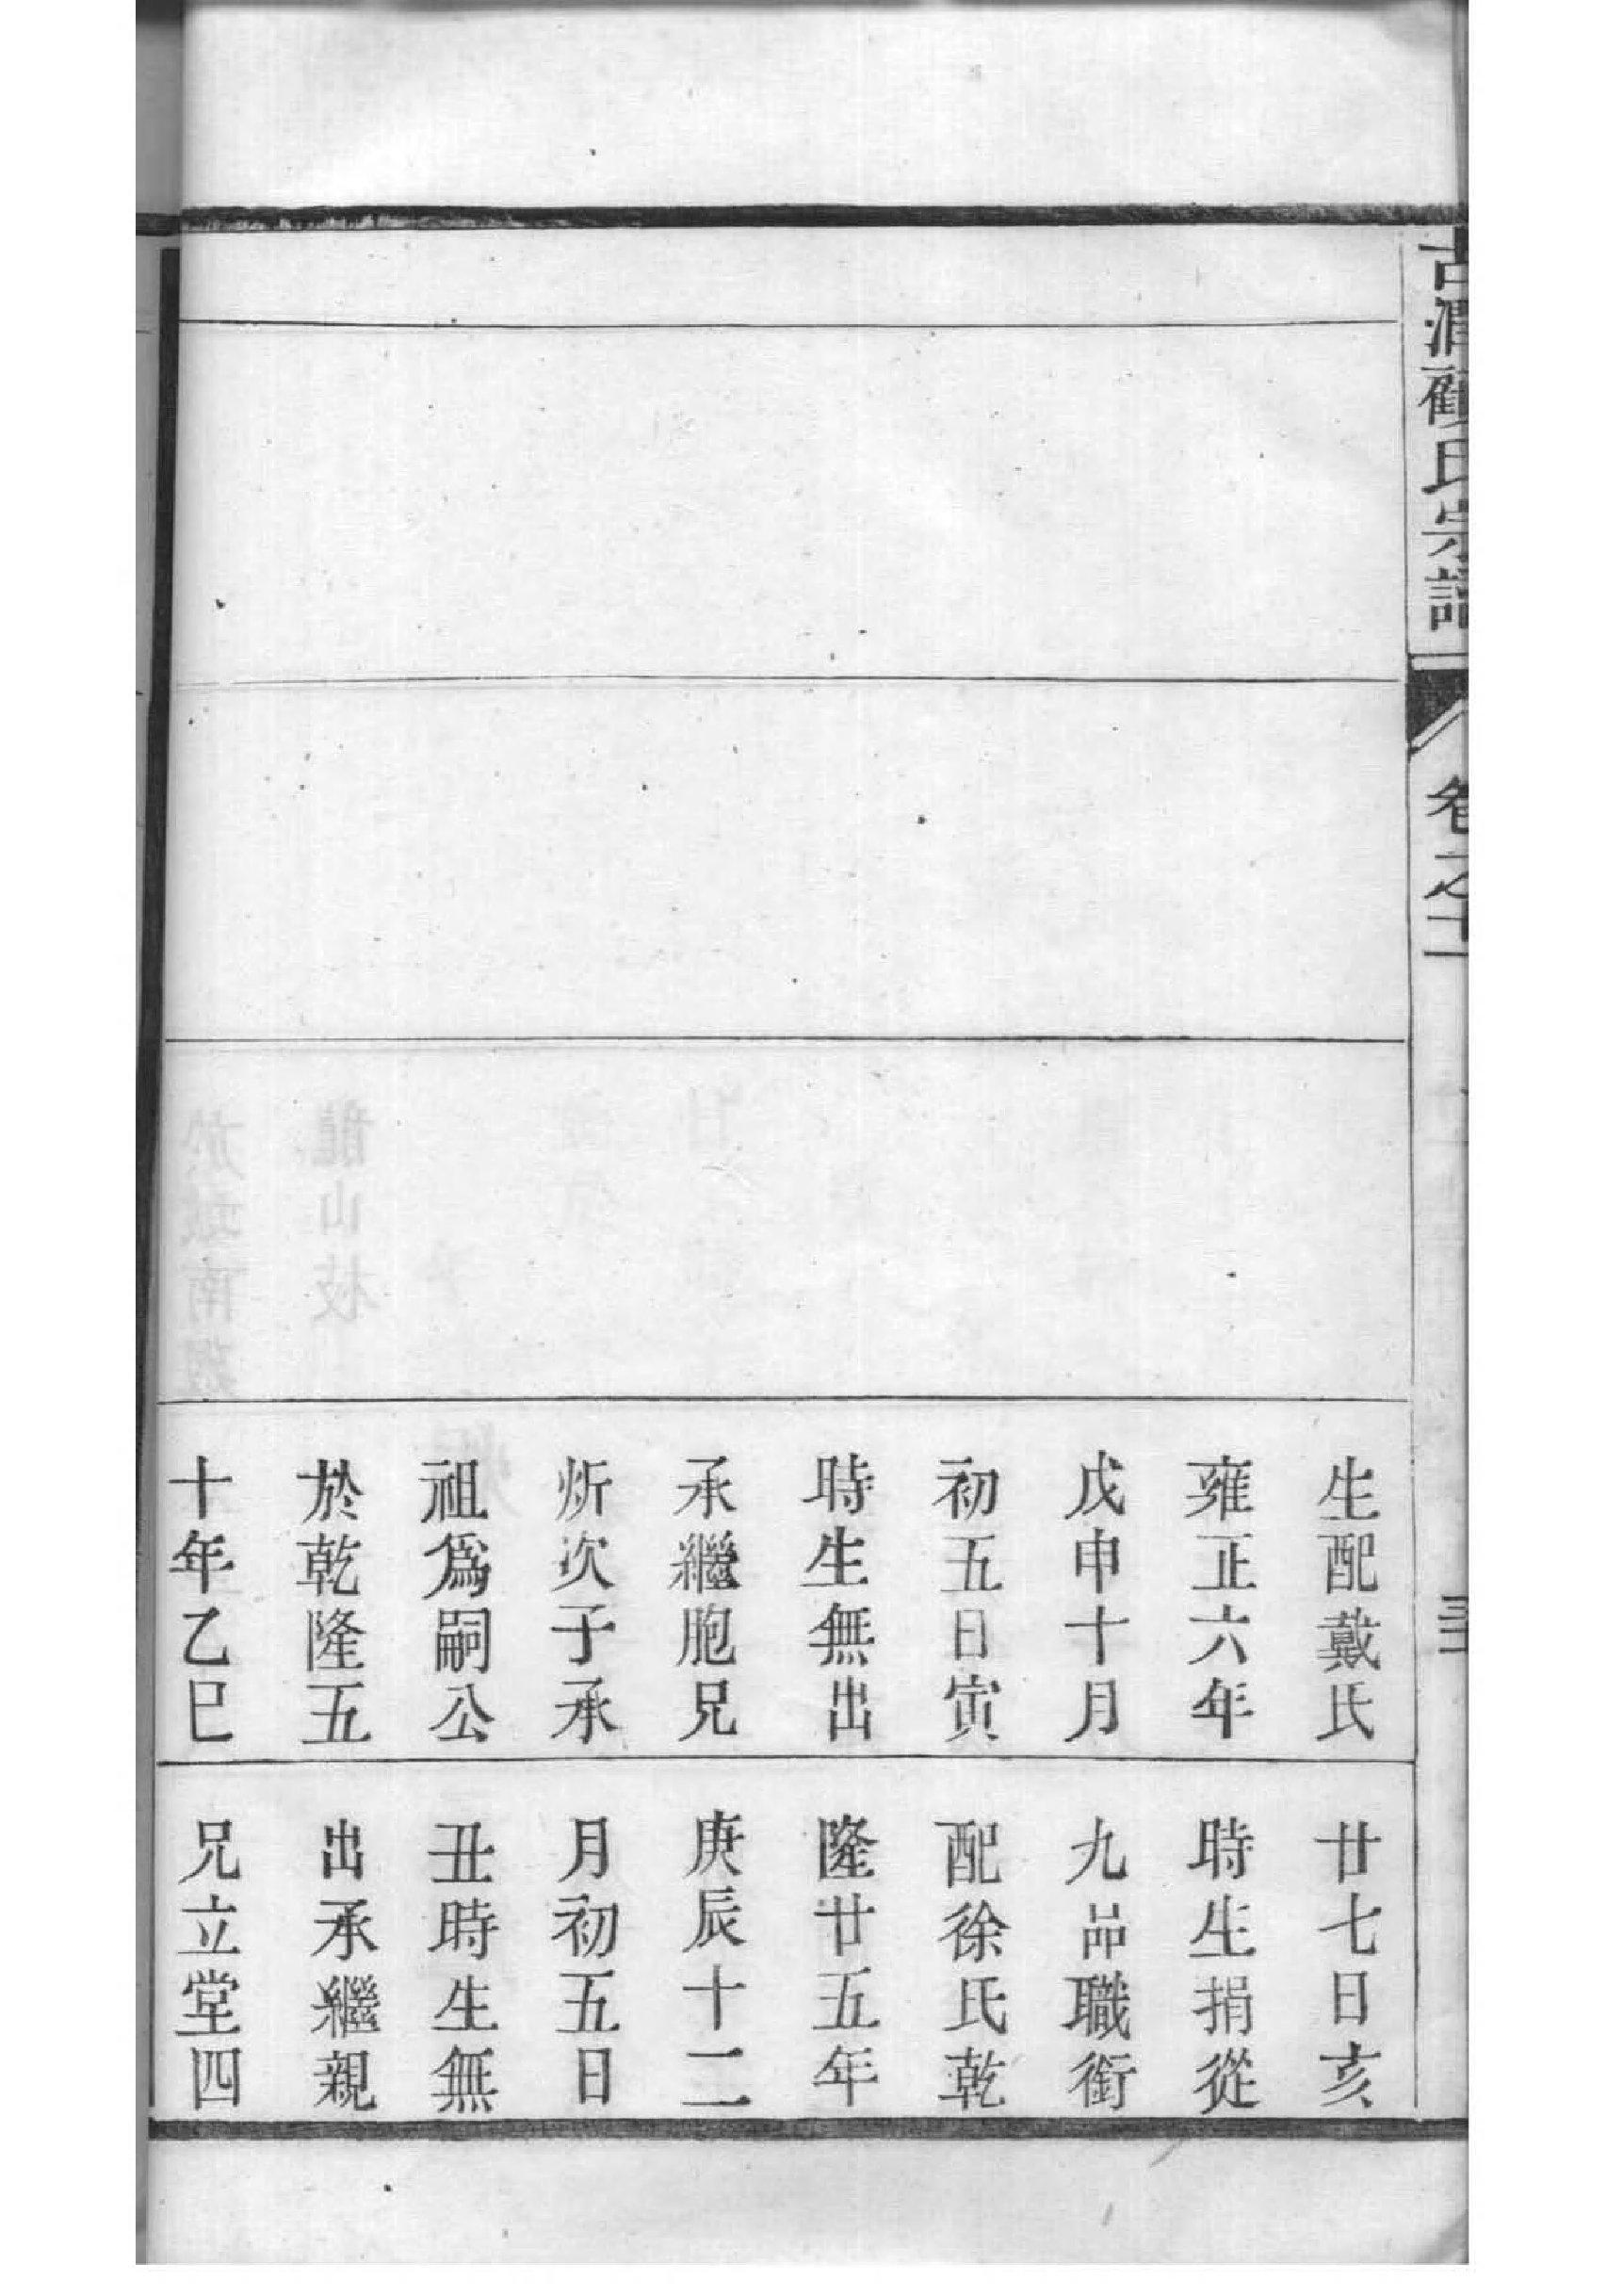 古潤顧氏宗譜
卷之十一
生配戴氏
雍正六年
戊申十月
初五日寅
時生無出
承繼胞兄
炘次子承
祖爲嗣公
於乾隆五
十年乙巳
廿七日亥
時生捐從
九品職銜
配徐氏乾
隆廿五年
庚辰十二
月初五日
丑時生無
出承繼親
兄立堂四